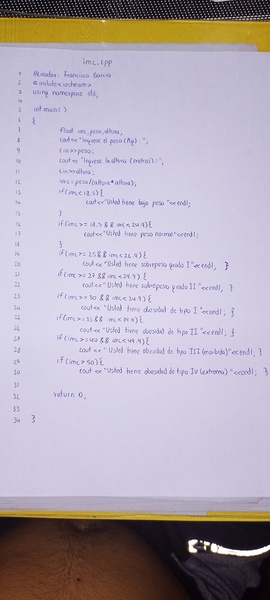 imc.cpp
1 Alvarado: Francisco Garcia
2 #include<iostream>
3 using namespace std;
4
5 int main()
6 {
7 float imc, peso, altura;
8 cout<<"Ingrese el peso (Kg): ";
9 cin>>peso;
10 cout<<"Ingrese la altura (metros): ";
11 cin>>altura;
12 imc=peso/(altura*altura);
13 if(imc<18.5){
14 cout<<"Usted tiene bajo peso"<<endl;
15 }
16 if(imc>=18.5 && imc<24.9){
17 cout<<"Usted tiene peso normal"<<endl;
18 }
19 if(imc>=25 && imc<26.9){
20 cout<<"Usted tiene sobrepeso grado I"<<endl; }
21 if(imc>=27 && imc<29.9){
22 cout<<"Usted tiene sobrepeso grado II"<<endl; }
23 if(imc>=30 && imc<34.9){
24 cout<<"Usted tiene obesidad de tipo I"<<endl; }
25 if(imc>=35 && imc<39.9){
26 cout<<"Usted tiene obesidad de tipo II"<<endl; }
27 if(imc>=40 && imc<49.9){
28 cout<<"Usted tiene obesidad de tipo III (morbida)"<<endl; }
29 if(imc>50){
30 cout<<"Usted tiene obesidad de tipo IV (extrema)"<<endl; }
31
32 return 0;
33
34 }